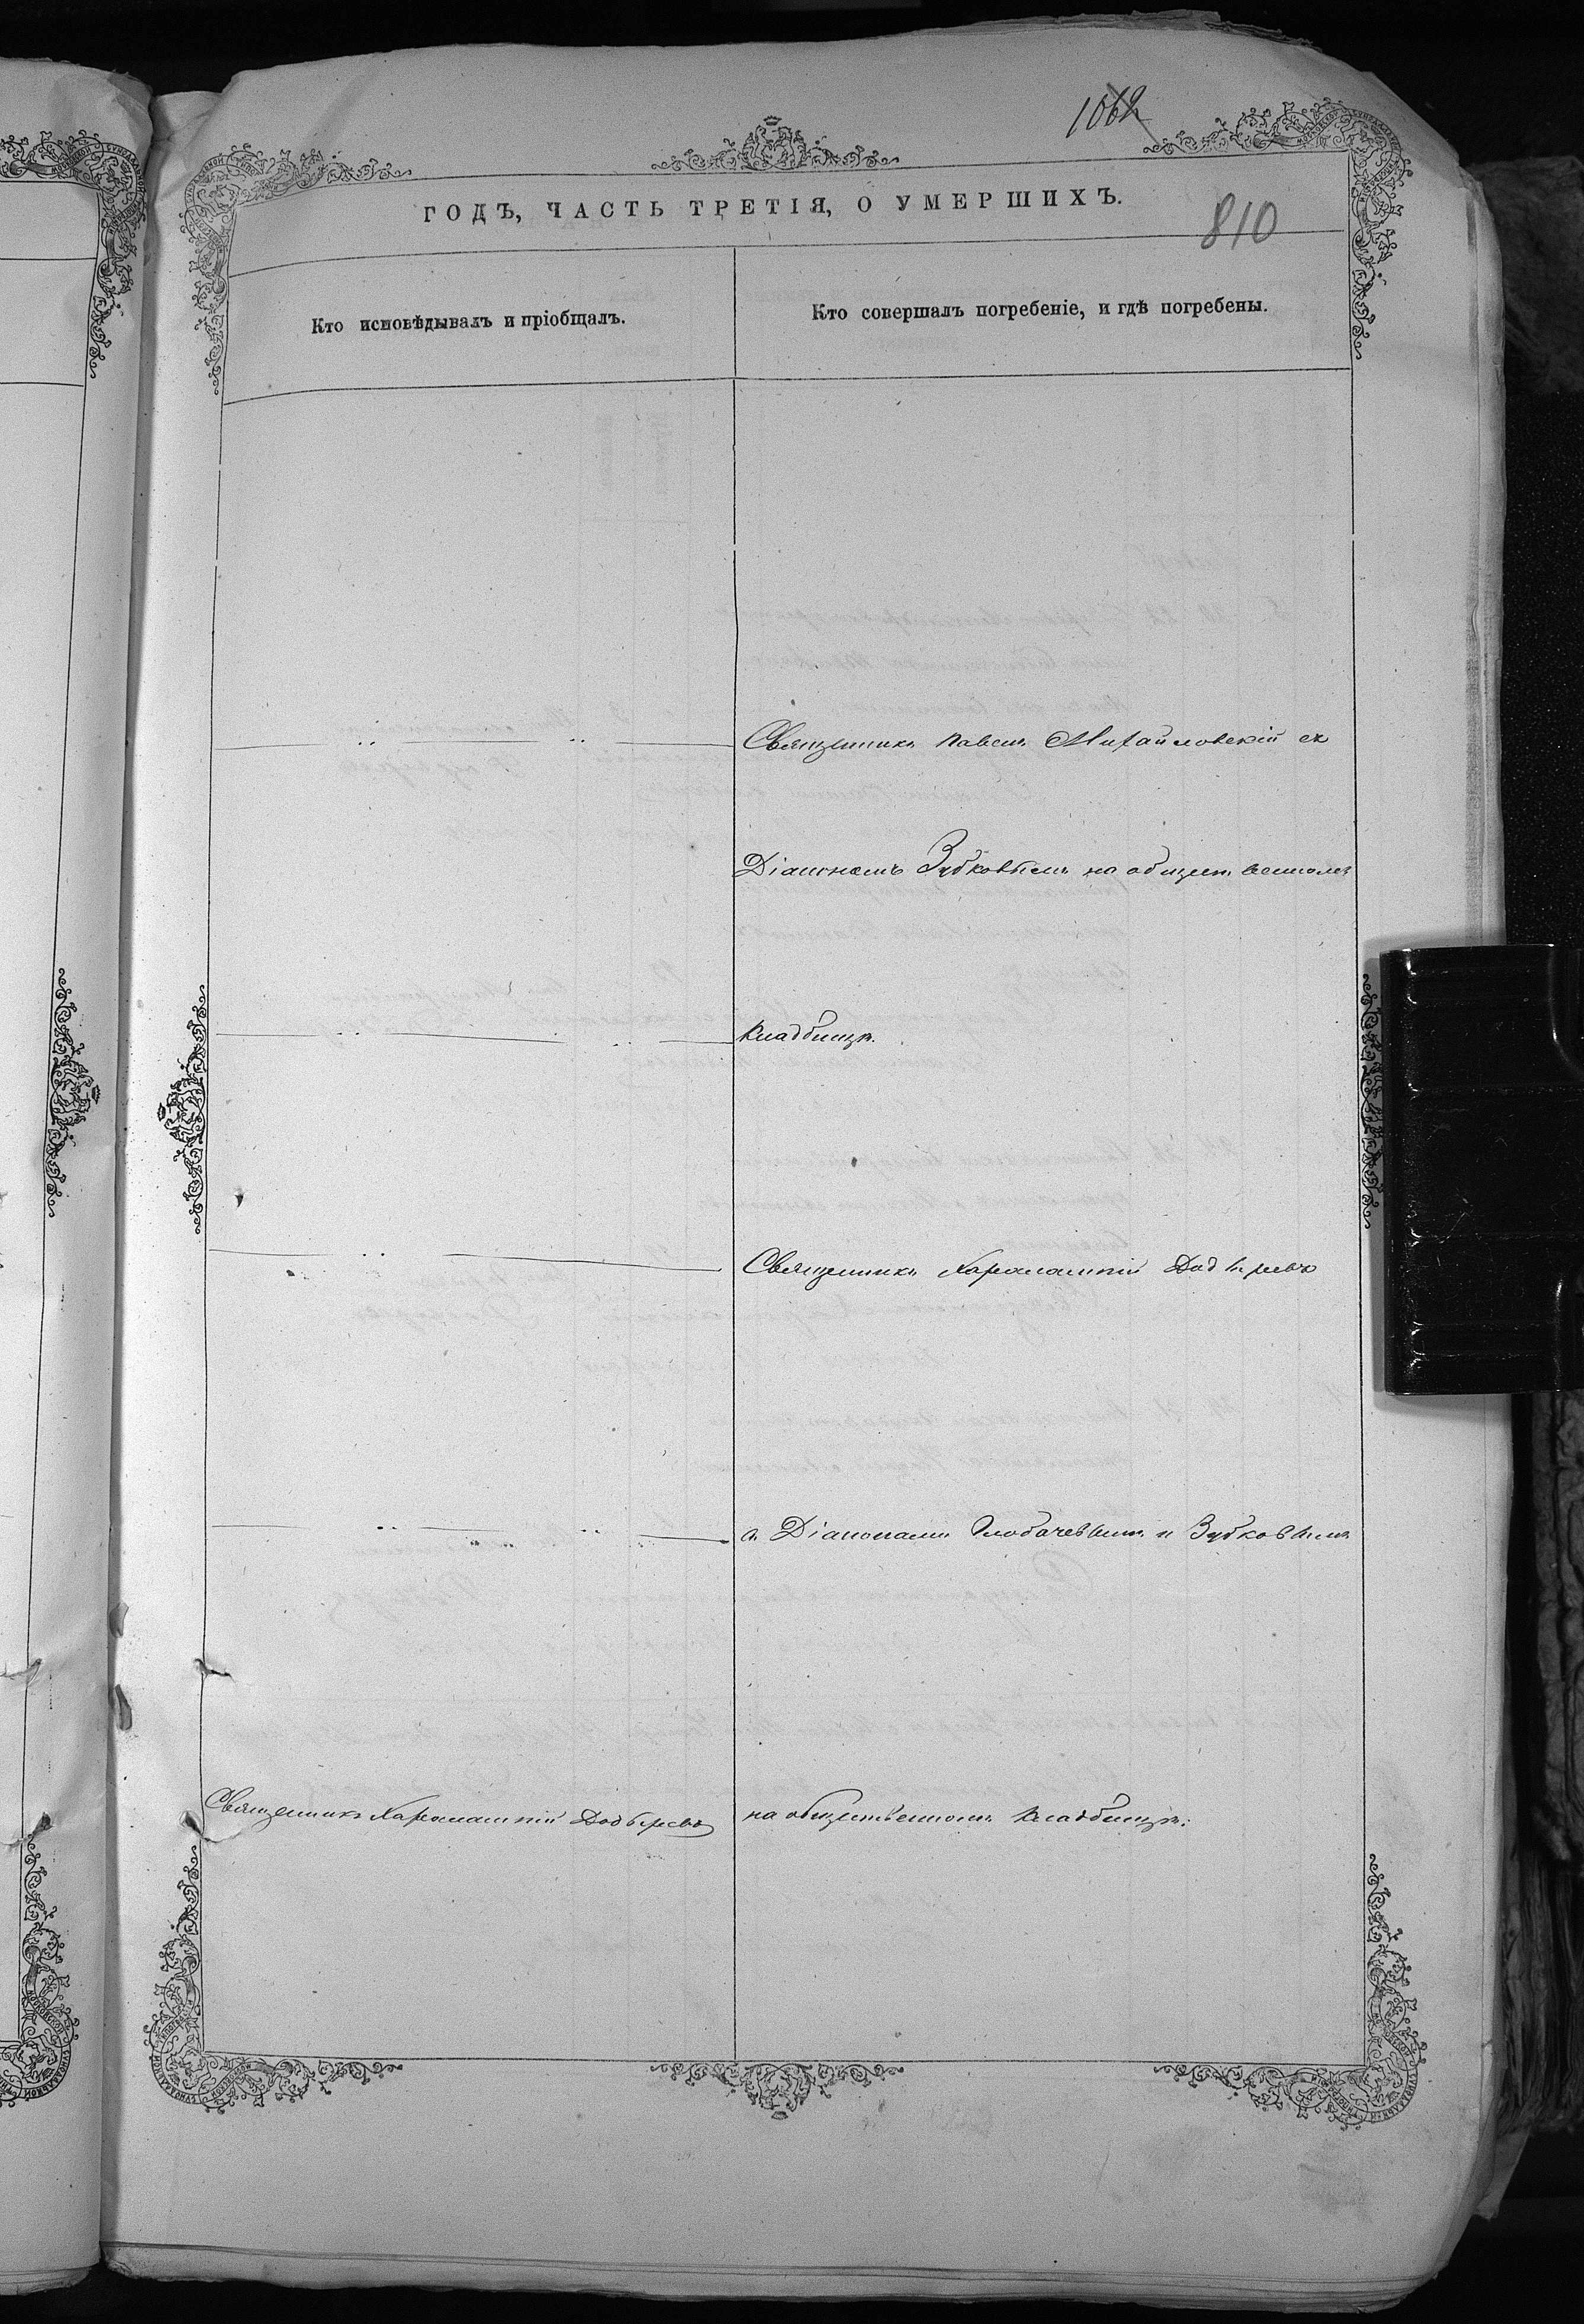 1062
ГОДЪ, ЧАСТЬ ТРЕТІЯ, О УМЕРШИХЪ.
810
Кто исповѣдывалъ и пріобщалъ.
Кто совершалъ погребеніе, и гдѣ погребены.
Священникъ Павелъ Михайловскій съ
Діакономъ Зубковымъ на общественномъ
кладбищѣ.
Священникъ Харалампій
съ Діаконами и Зубковымъ
Священникъ Харалампій
на общественномъ кладбищѣ.